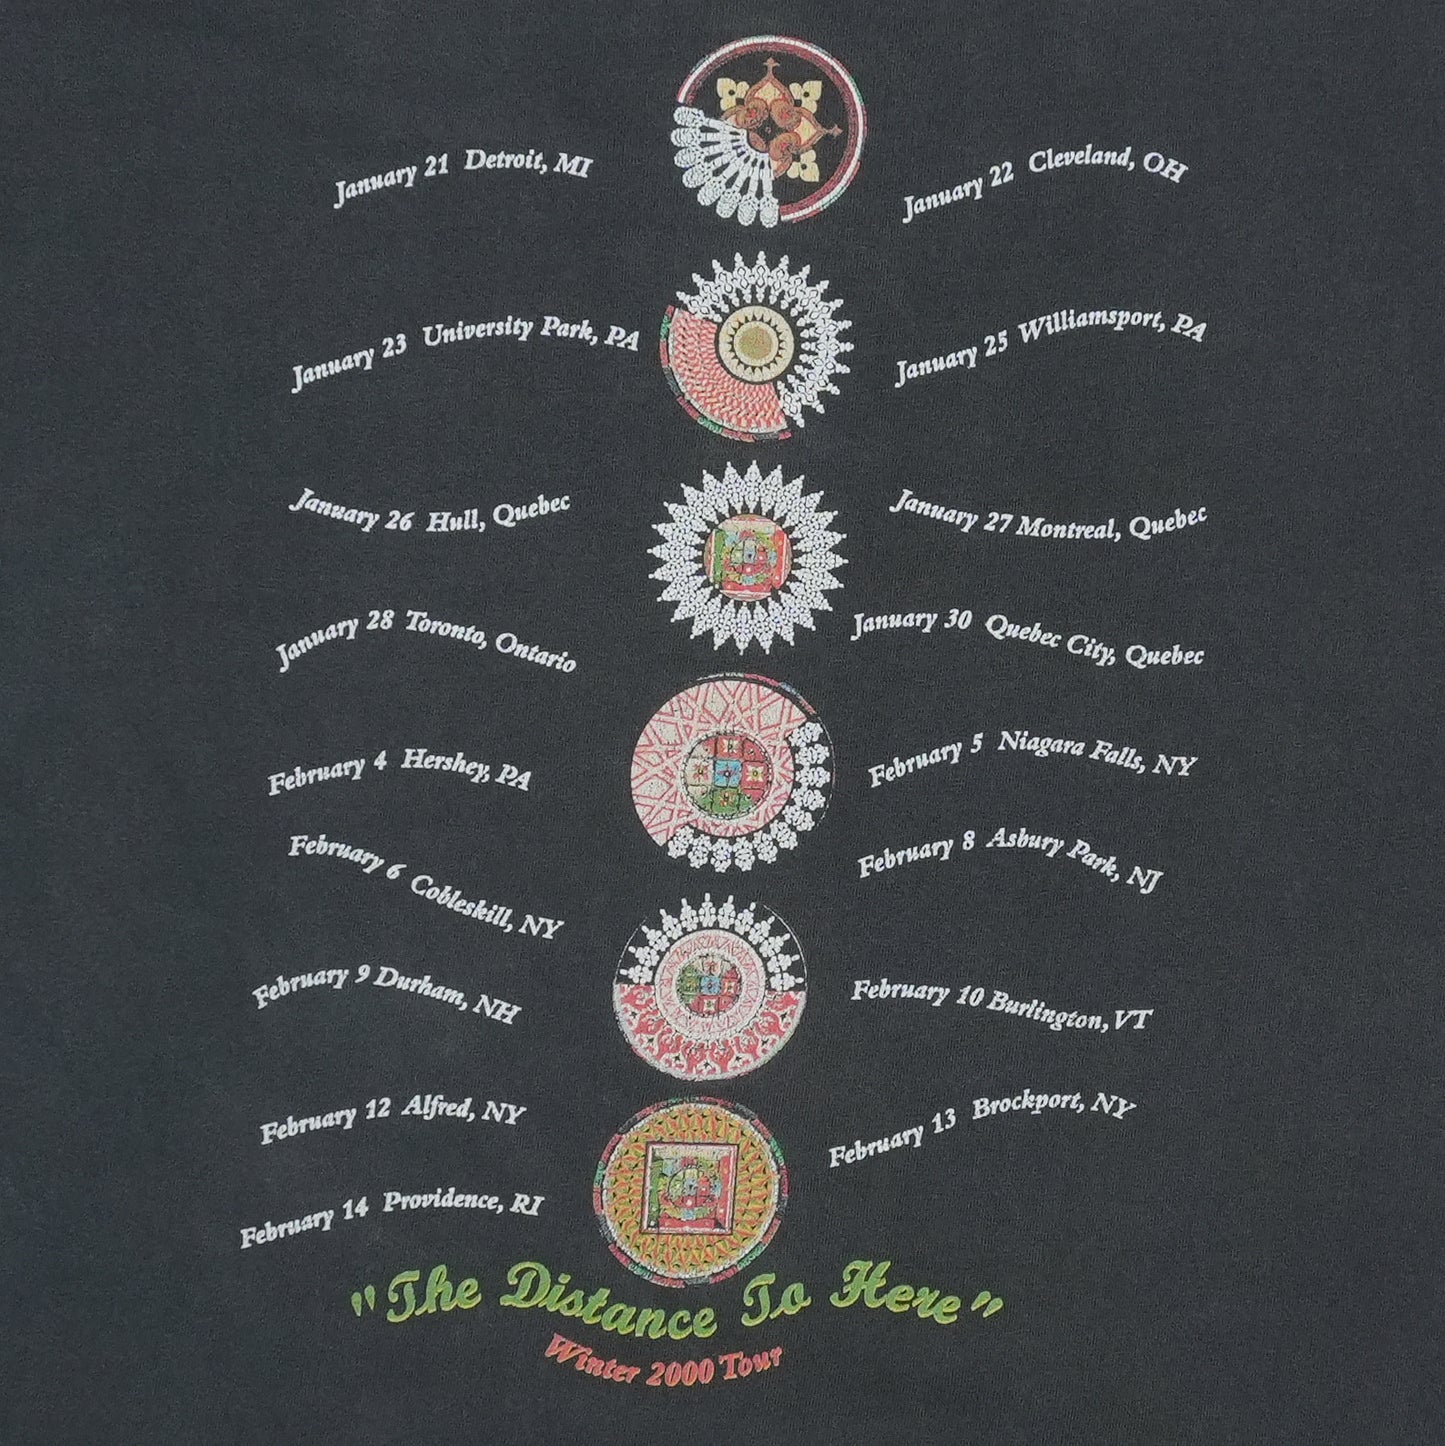 January 21 Detroit, MI
January 22 Cleveland, OH
January 23 University Park, PA
January 25 Williamsport, PA
January 26 Hull, Quebec
January 27 Montreal, Quebec
January 28 Toronto, Ontario
January 30 Quebec City, Quebec
February 4 Hershey, PA
February 5 Niagara Falls, NY
February 6 Cobleskill, NY
February 8 Asbury Park, NJ
February 9 Durham, NH
February 10 Burlington, VT
February 12 Alfred, NY
February 13 Brockport, NY
February 14 Providence, RI
"The Distance To Here"
Winter 2000 Tour